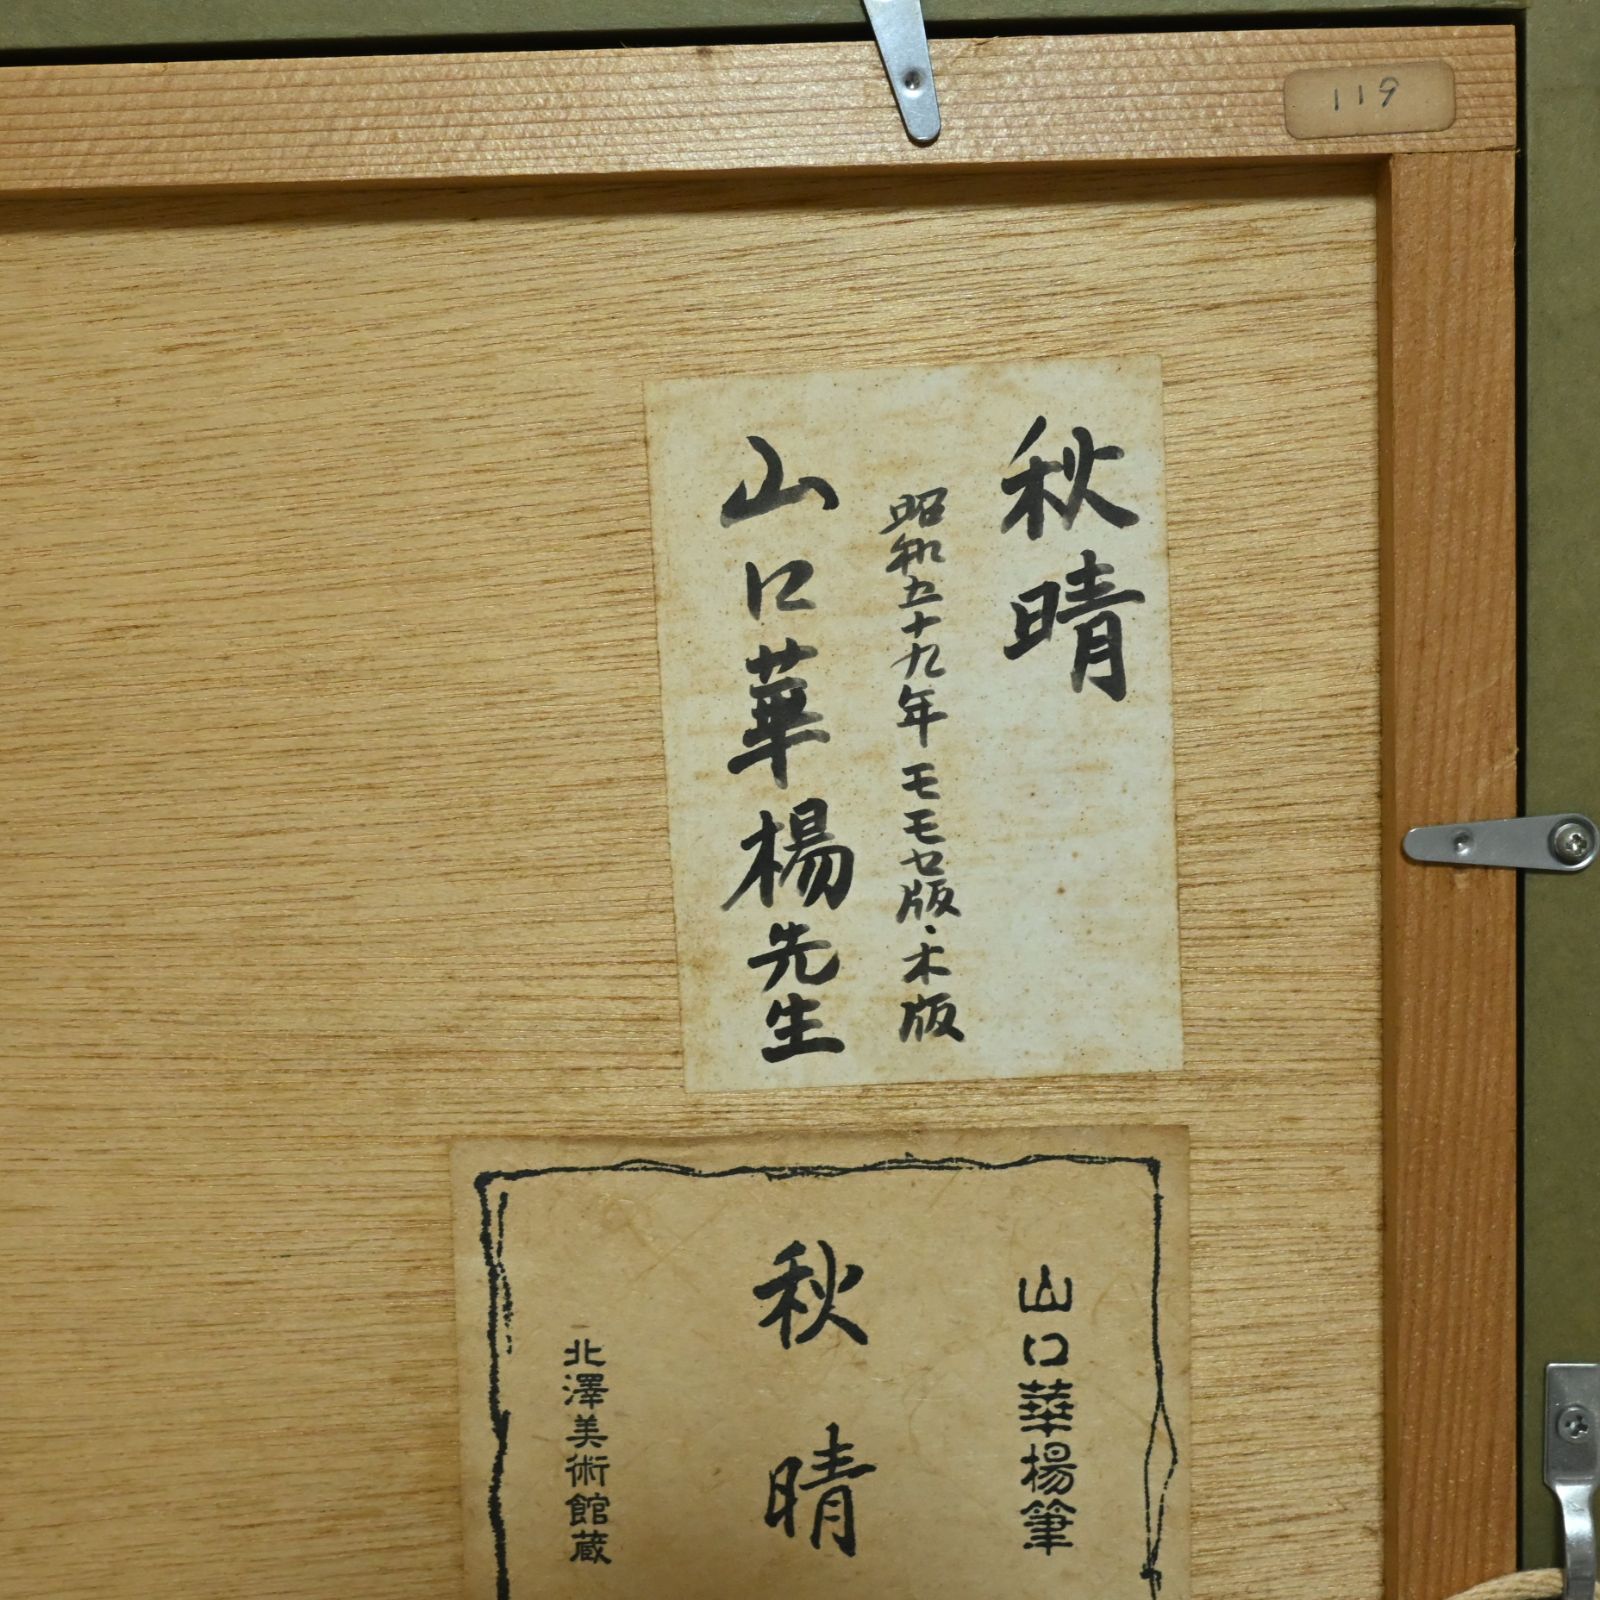 119
秋晴
昭和五十九年 モモセ版・木版
山口華楊先生
山口華楊筆
秋晴
北澤美術館蔵